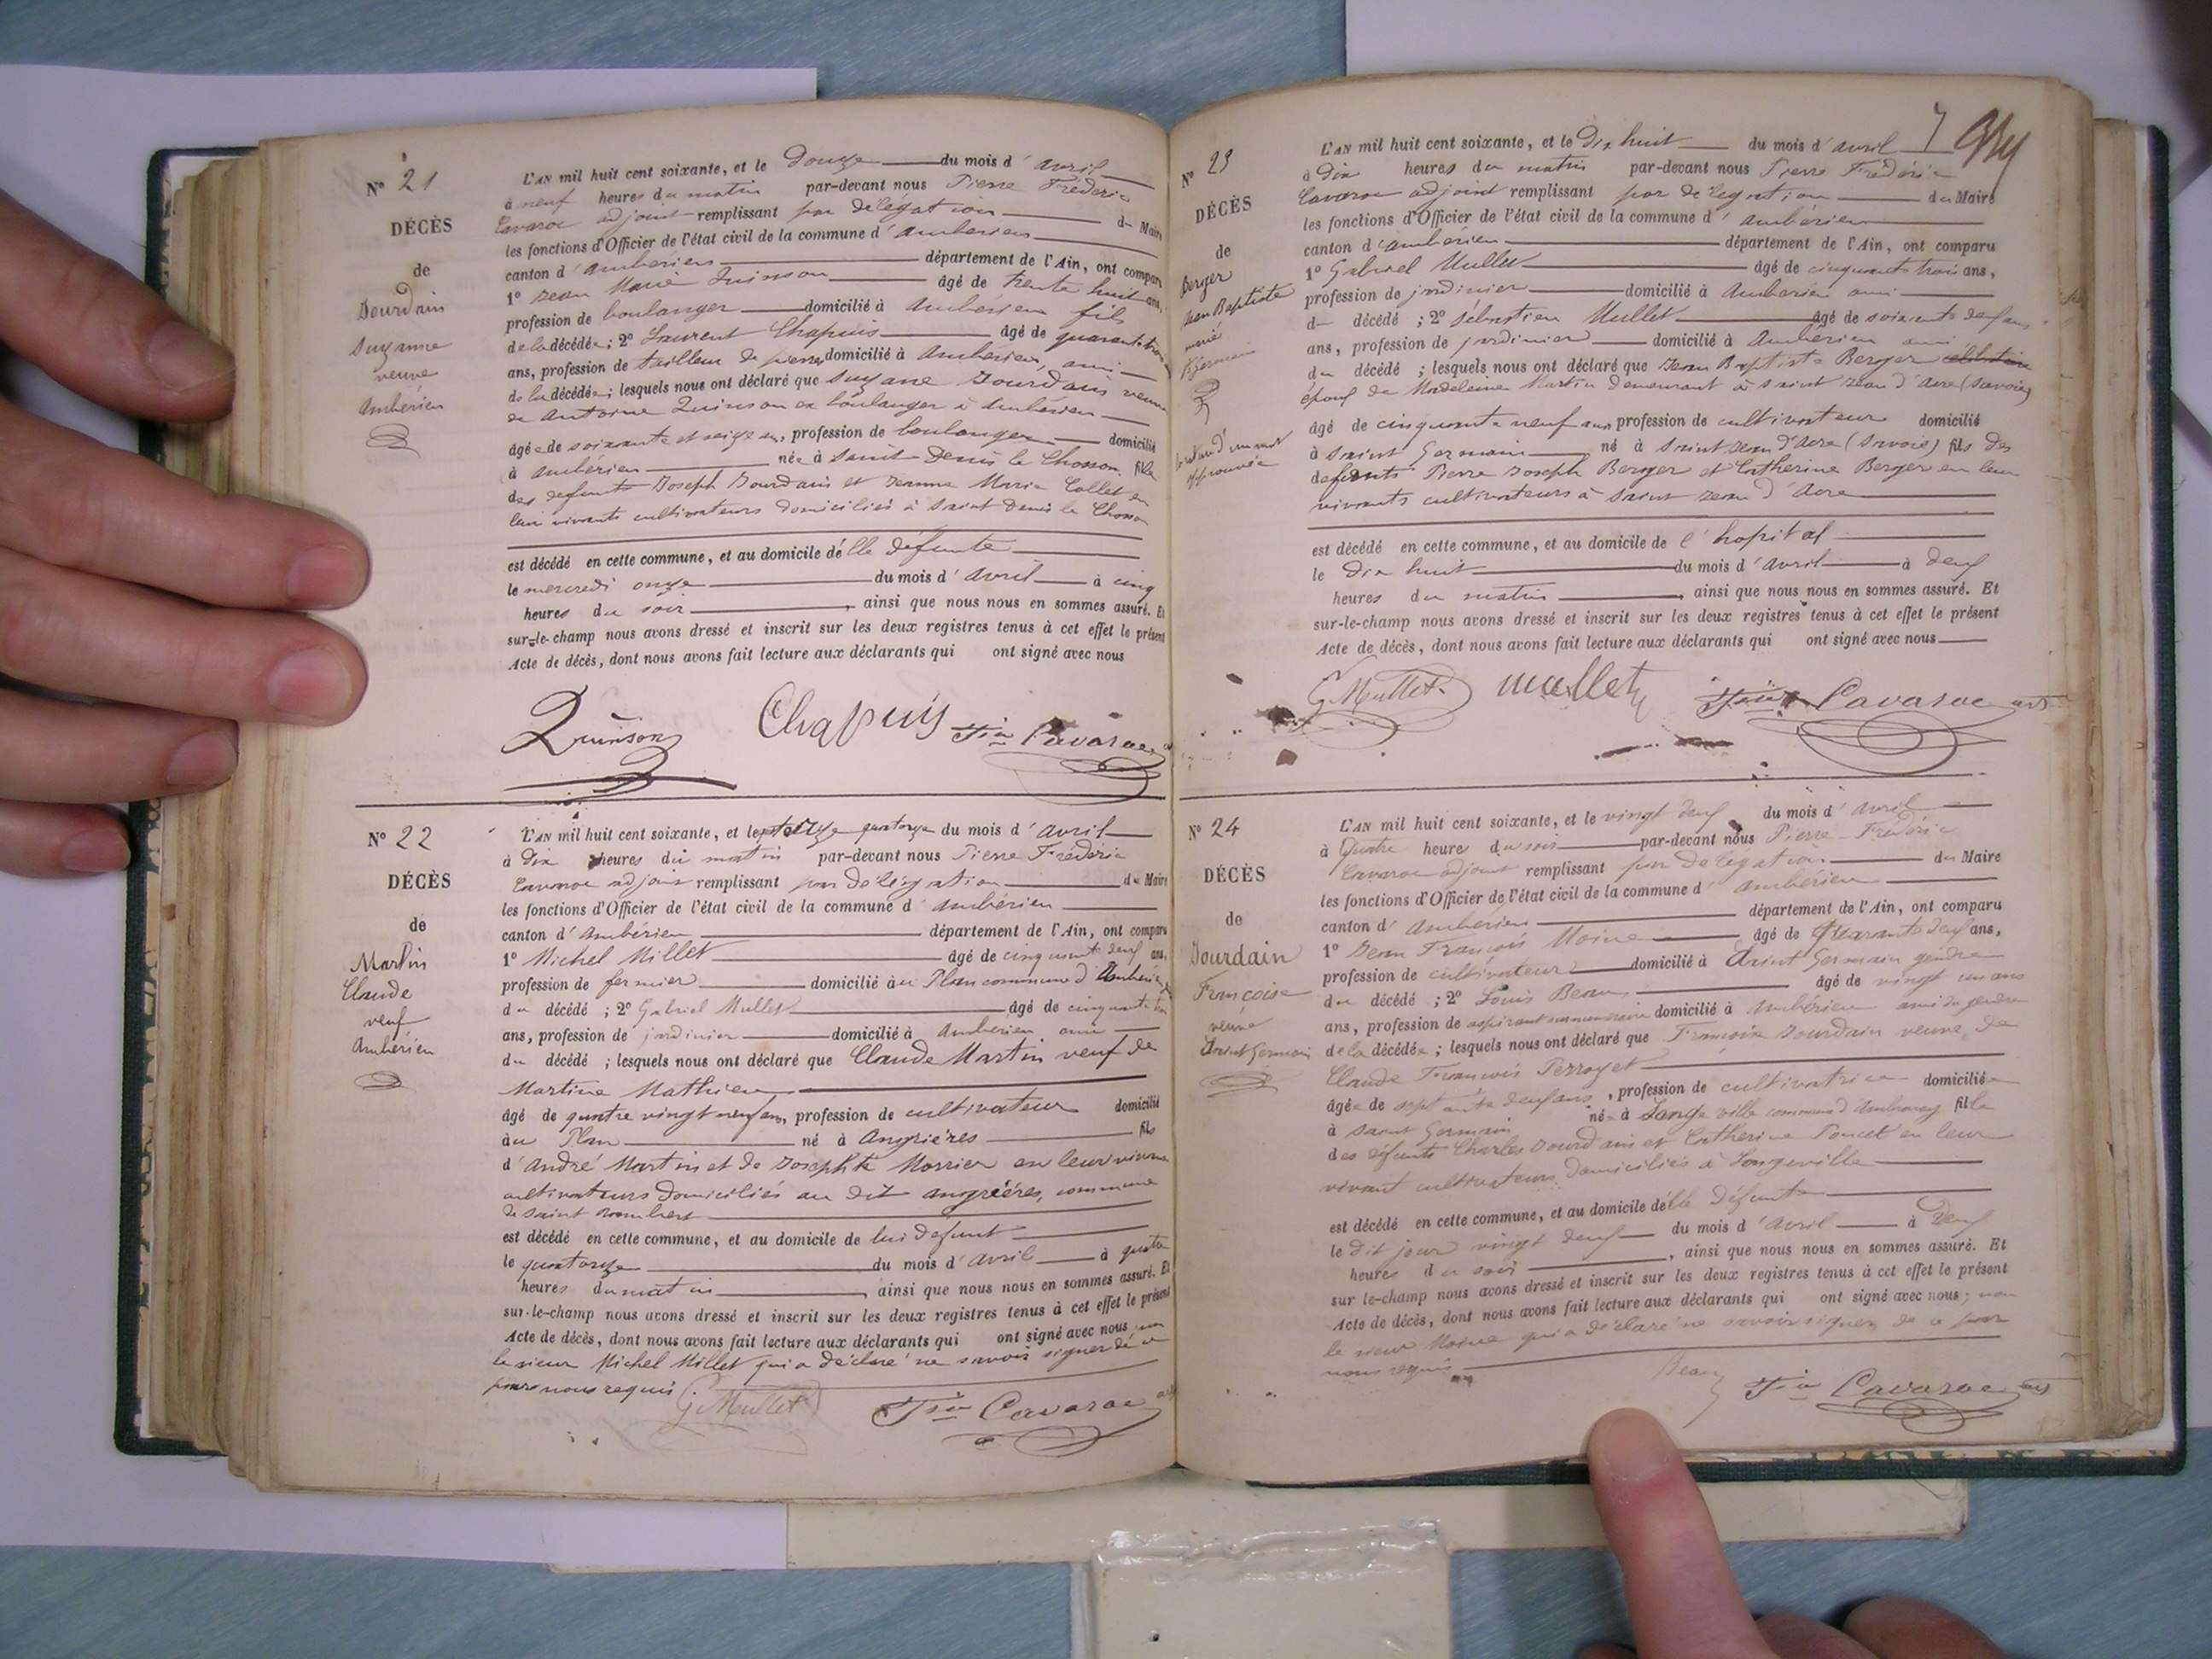 N° 21
DÉCÈS
de
Jourdain
Suzanne
veuve
Ambérieu
L'AN mil huit cent soixante, et le Douze du mois d' avril
à neuf heures du matin par-devant nous Pierre Frédéric
Cavaroc adjoint remplissant par délégation du Maire
les fonctions d'Officier de l'état civil de la commune d' ambérieu
canton d' ambérieu département de l'Ain, ont comparu
1° Jean Marie Quinson âgé de trente huit ans,
profession de boulanger domicilié à ambérieu fils
de la décédée; 2° Laurent Chapuis âgé de quarante trois
ans, profession de tailleur de pierres domicilié à ambérieu, ami
de la décédée; lesquels nous ont déclaré que Suzane Jourdain veuve
de Antoine Quinson ex boulanger à ambérieu
âgée de soixante et seize ans, profession de boulangère domicilié
à ambérieu née à Saint Denis le Chosson fille
des defunts Joseph Jourdain et Jeanne Marie Collet en
leur vivants cultivateurs domiciliés à Saint Denis le Chosson
est décédé en cette commune, et au domicile de lle défunte
le mercredi onze du mois d' avril à cinq
heures du soir, ainsi que nous nous en sommes assuré. Et
sur-le-champ nous avons dressé et inscrit sur les deux registres tenus à cet effet le présent
Acte de décès, dont nous avons fait lecture aux déclarants qui ont signé avec nous
Quinson Chapuis Fric Cavaroc
N° 22
DÉCÈS
de
Martin
Claude
veuf
Ambérieu
L'AN mil huit cent soixante, et le quatorze du mois d' avril
à dix heures du matin par-devant nous Pierre Frédéric
Cavaroc adjoint remplissant par délégation du Maire
les fonctions d'Officier de l'état civil de la commune d' ambérieu
canton d' ambérieu département de l'Ain, ont comparu
1° Michel Millet âgé de cinquante neuf ans,
profession de fermier domicilié au Plan commune d'Ambérieu
du décédé; 2° Gabriel Mullet âgé de cinquante trois
ans, profession de jardinier domicilié à ambérieu ami
du décédé; lesquels nous ont déclaré que Claude Martin veuf de
Martine Mathieu
âgé de quatre vingt neuf ans, profession de cultivateur domicilié
au Plan né à Angrières fils
d'André Martin et de Josephte Morrier en leur vivant
cultivateurs domiciliés au dit angrières, commune
de saint Rambert
est décédé en cette commune, et au domicile de lui défunt
le quatorze du mois d' avril à quatre
heures du matin, ainsi que nous nous en sommes assuré. Et
sur-le-champ nous avons dressé et inscrit sur les deux registres tenus à cet effet le présent
Acte de décès, dont nous avons fait lecture aux déclarants qui ont signé avec nous non
le sieur Michel Millet qui a déclaré ne savoir signer de ce
par nous requis
G. Mullet Fric Cavaroc
7
N° 23
DÉCÈS
de
Berger
Jean Baptiste
marié
St germain
L'AN mil huit cent soixante, et le Dix huit du mois d' avril
à dix heures du matin par-devant nous Pierre Frédéric
Cavaroc adjoint remplissant par délégation du Maire
les fonctions d'Officier de l'état civil de la commune d' ambérieu
canton d' ambérieu département de l'Ain, ont comparu
1° Gabriel Mullet âgé de cinquante trois ans,
profession de jardinier domicilié à Ambérieu ami
du décédé; 2° Sébastien Mullet âgé de soixante deux ans
ans, profession de jardinier domicilié à Ambérieu ami
du décédé; lesquels nous ont déclaré que Jean Baptiste Berger
époux de Madeleine Martin demeurant à saint Jean d'Acre (Savoie)
âgé de cinquante neuf ans profession de cultivateur domicilié
à saint Germain né à saint Jean d'Acre (Savoie) fils des
defunts Pierre Joseph Berger et Catherine Berger en leur
vivants cultivateurs à saint Jean d'Acre
est décédé en cette commune, et au domicile de l'hopital
le Dix huit du mois d' avril à deux
heures du matin, ainsi que nous nous en sommes assuré. Et
sur-le-champ nous avons dressé et inscrit sur les deux registres tenus à cet effet le présent
Acte de décès, dont nous avons fait lecture aux déclarants qui ont signé avec nous
G. Mullet mullet Fric Cavaroc
N° 24
DÉCÈS
de
Jourdain
Françoise
veuve
Saint Germain
L'AN mil huit cent soixante, et le vingt deux du mois d' avril
à Quatre heure du soir par-devant nous Pierre Frédéric
Cavaroc adjoint remplissant par délégation du Maire
les fonctions d'Officier de l'état civil de la commune d' ambérieu
canton d' ambérieu département de l'Ain, ont comparu
1° Jean François Moine âgé de Quarante deux ans,
profession de cultivateur domicilié à Saint Germain gendre
du décédé; 2° Louis Beau âgé de vingt un ans
ans, profession de aspirant surnuméraire domicilié à ambérieu ami du gendre
de la décédée; lesquels nous ont déclaré que Françoise Jourdain veuve de
Claude François Perroyet
âgée de septante deux ans, profession de cultivatrice domiciliée
à saint Germain née à Longeville commune d'Ambronay fille
des défunts Charles Jourdain et Catherine Poncet en leur
vivant cultivateurs domiciliés à Longeville
est décédé en cette commune, et au domicile de lle défunte
le dit jour vingt deux du mois d' avril à deux
heures du soir, ainsi que nous nous en sommes assuré. Et
sur le-champ nous avons dressé et inscrit sur les deux registres tenus à cet effet le présent
Acte de décès, dont nous avons fait lecture aux déclarants qui ont signé avec nous; non
le sieur Moine qui a déclaré ne savoir signer, de ce par
nous requis
Beau Fric Cavaroc